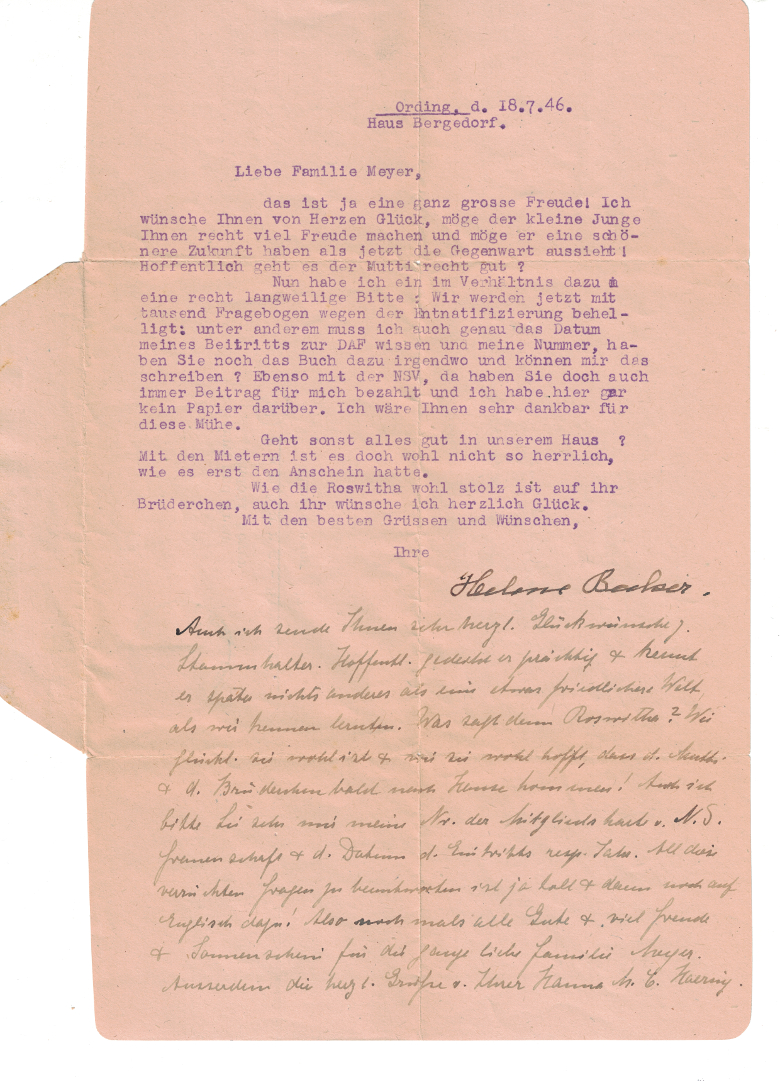 Ording, d. 18.7.46.
Haus Bergedorf.
Liebe Familie Meyer,
das ist ja eine ganz grosse Freude! Ich
wünsche Ihnen von Herzen Glück, möge der kleine Junge
Ihnen recht viel Freude machen und möge er eine schö-
nere Zukunft haben als jetzt die Gegenwart aussieht!
Hoffentlich geht es der Mutti recht gut ?
Nun habe ich ein im Verhältnis dazu
eine recht langweilige Bitte : Wir werden jetzt mit
tausend Fragebogen wegen der Entnatifizierung behel-
ligt; unter anderem muss ich auch genau das Datum
meines Beitritts zur DAF wissen und meine Nummer, ha-
ben Sie noch das Buch dazu irgendwo und können mir das
schreiben ? Ebenso mit der NSV, da haben Sie doch auch
immer Beitrag für mich bezahlt und ich habe hier gar
kein Papier darüber. Ich wäre Ihnen sehr dankbar für
diese Mühe.
Geht sonst alles gut in unserem Haus ?
Mit den Mietern ist es doch wohl nicht so herrlich,
wie es erst den Anschein hatte.
Wie die Roswitha wohl stolz ist auf ihr
Brüderchen, auch ihr wünsche ich herzlich Glück.
Mit den besten Grüssen und Wünschen,
Ihre
Helene
Auch ich sende Ihnen sehr herzl. Glückwünsche z.
Stammhalter. Hoffentl. gedeiht er prächtig & kennt
er später nichts anderes als eine etwas friedlichere Welt,
als wir kennen lernten. Was sagt denn Roswitha? Wie
glückl. sie wohl ist & wie sie wohl hofft, dass d. Mutti
& d. Brüderchen bald nach Hause kommen! Auch ich
bitte Sie sehr um meine Nr. der Mitgliedskarte v. N.S.
Frauenschaft & d. Datum d. Eintritts resp. Jahr. All diese
verrückten Fragen zu beantworten ist ja toll & dann noch auf
Englisch dazu! Also nochmals alle Gute & viel Freude
& Sonnenschein für die ganze liebe Familie Meyer.
Ausserdem die herzl. Grüße v. Ihrer Hanna M. C.